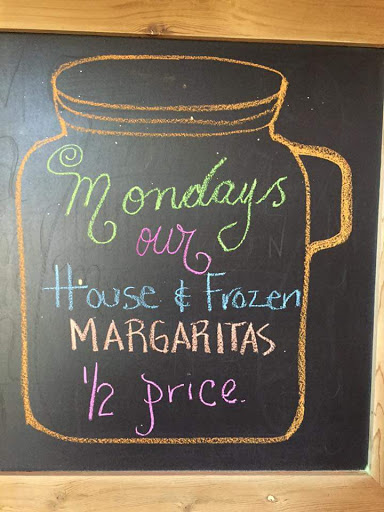 Mondays
our
House & Frozen
MARGARITAS
1/2 price.